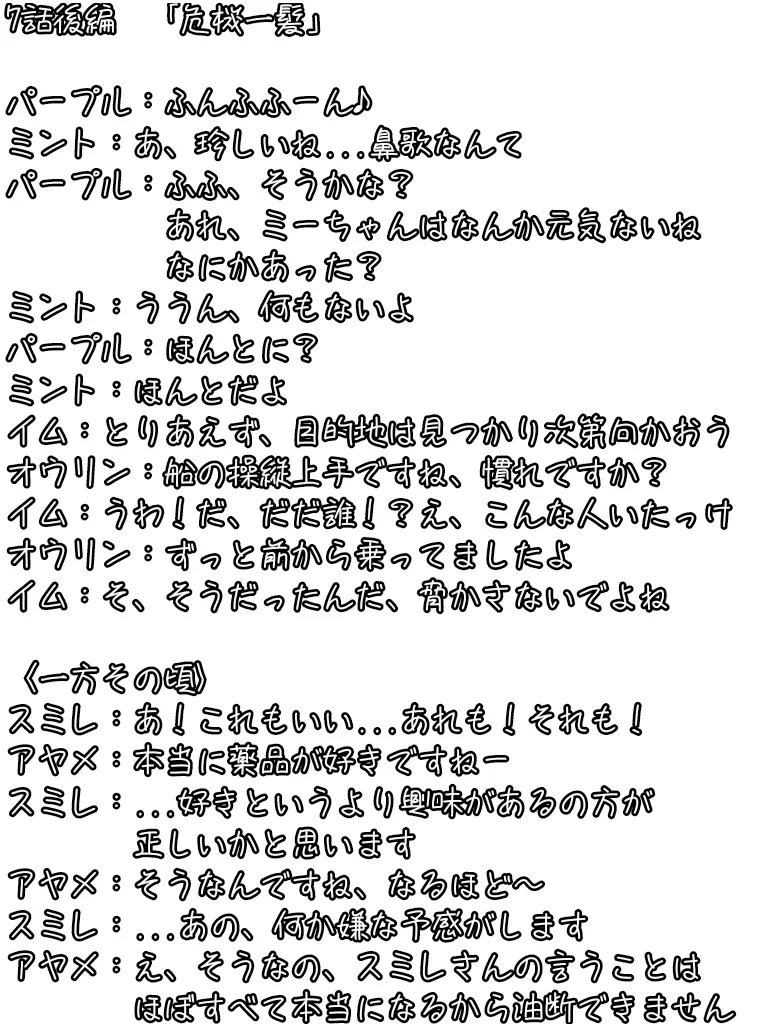 7話後編　「危機一髪」
パープル：ふんふふーん♪
ミント：あ、珍しいね...鼻歌なんて
パープル：ふふ、そうかな？
あれ、ミーちゃんはなんか元気ないね
なにかあった？
ミント：ううん、何もないよ
パープル：ほんとに？
ミント：ほんとだよ
イム：とりあえず、目的地は見つかり次第向かおう
オウリン：船の操縦上手ですね、慣れですか？
イム：うわ！だ、だだ誰！？え、こんな人いたっけ
オウリン：ずっと前から乗ってましたよ
イム：そ、そうだったんだ、脅かさないでよね
〈一方その頃〉
スミレ：あ！これもいい...あれも！それも！
アヤメ：本当に薬品が好きですねー
スミレ：...好きというより興味があるの方が
正しいかと思います
アヤメ：そうなんですね、なるほど〜
スミレ：...あの、何か嫌な予感がします
アヤメ：え、そうなの、スミレさんの言うことは
ほぼすべて本当になるから油断できません